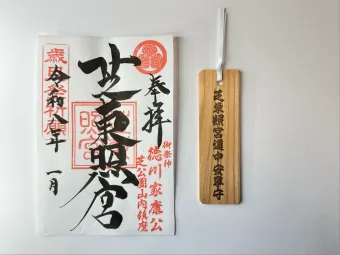 奉拝
御祭神
徳川家康公
芝公園山内鎮座
芝東照宮
歳旦祭祈願
令和八年
一月
芝東照宮道中安全守